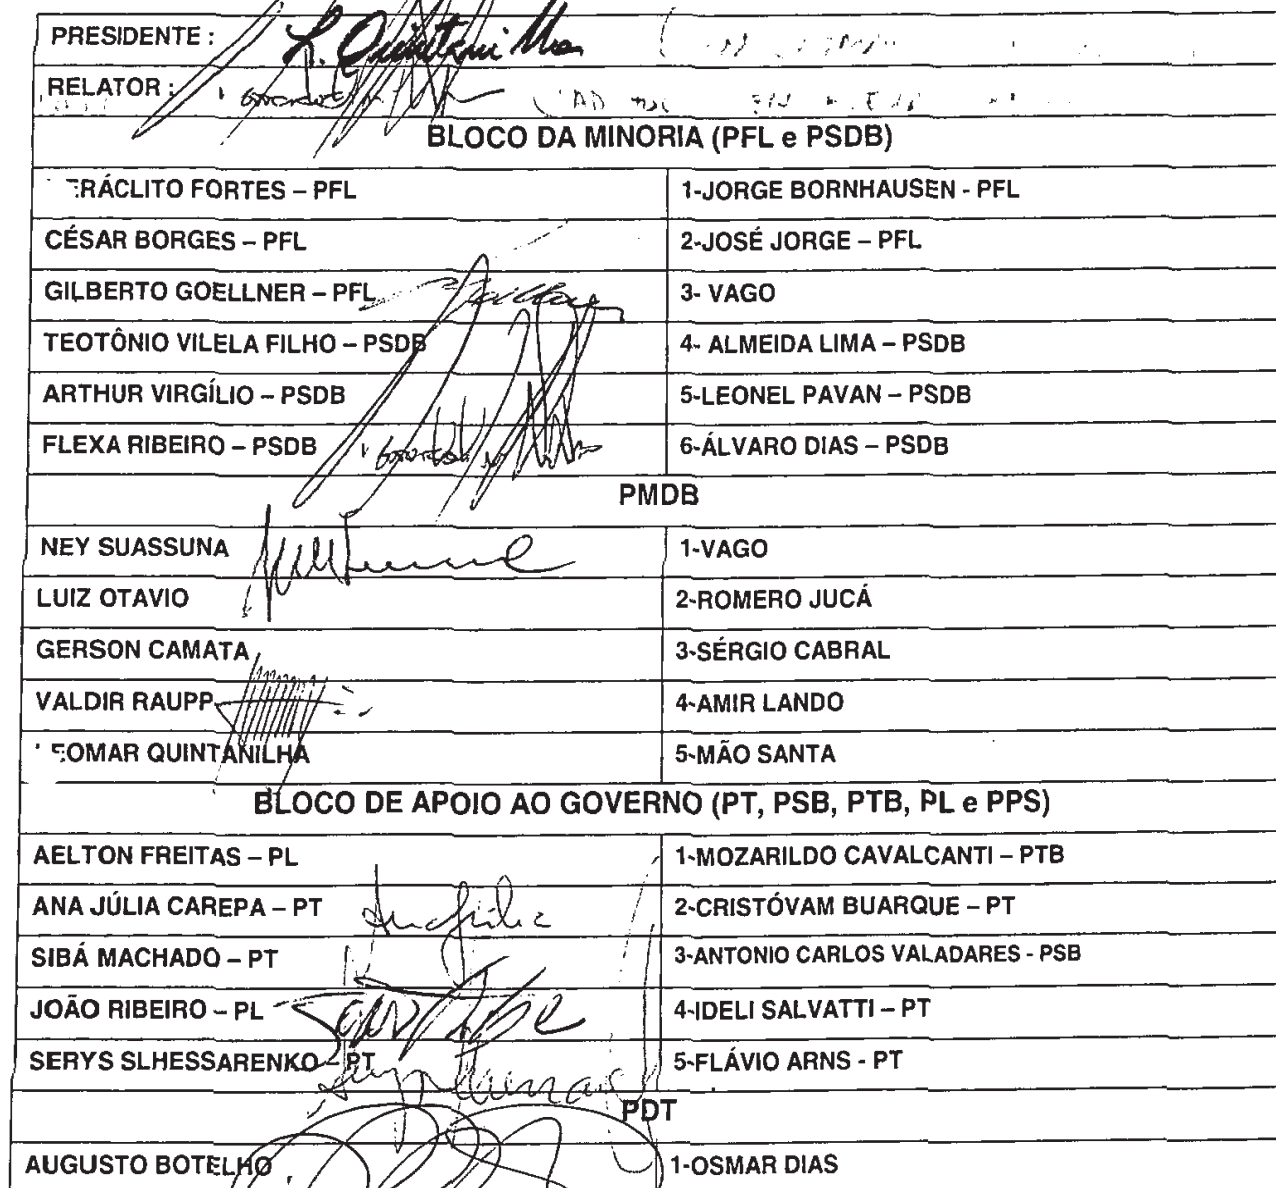 PRESIDENTE : L. Quintanilha
RELATOR :
BLOCO DA MINORIA (PFL e PSDB)
ERÁCLITO FORTES – PFL 1-JORGE BORNHAUSEN - PFL
CÉSAR BORGES – PFL 2-JOSÉ JORGE – PFL
GILBERTO GOELLNER – PFL 3- VAGO
TEOTÔNIO VILELA FILHO – PSDB 4- ALMEIDA LIMA – PSDB
ARTHUR VIRGÍLIO – PSDB 5-LEONEL PAVAN – PSDB
FLEXA RIBEIRO – PSDB 6-ÁLVARO DIAS – PSDB
PMDB
NEY SUASSUNA 1-VAGO
LUIZ OTAVIO 2-ROMERO JUCÁ
GERSON CAMATA 3-SÉRGIO CABRAL
VALDIR RAUPP 4-AMIR LANDO
EOMAR QUINTANILHA 5-MÃO SANTA
BLOCO DE APOIO AO GOVERNO (PT, PSB, PTB, PL e PPS)
AELTON FREITAS – PL 1-MOZARILDO CAVALCANTI – PTB
ANA JÚLIA CAREPA – PT Ana Júlia 2-CRISTÓVAM BUARQUE – PT
SIBÁ MACHADO – PT 3-ANTONIO CARLOS VALADARES - PSB
JOÃO RIBEIRO – PL 4-IDELI SALVATTI – PT
SERYS SLHESSARENKO – PT 5-FLÁVIO ARNS - PT
PDT
AUGUSTO BOTELHO 1-OSMAR DIAS